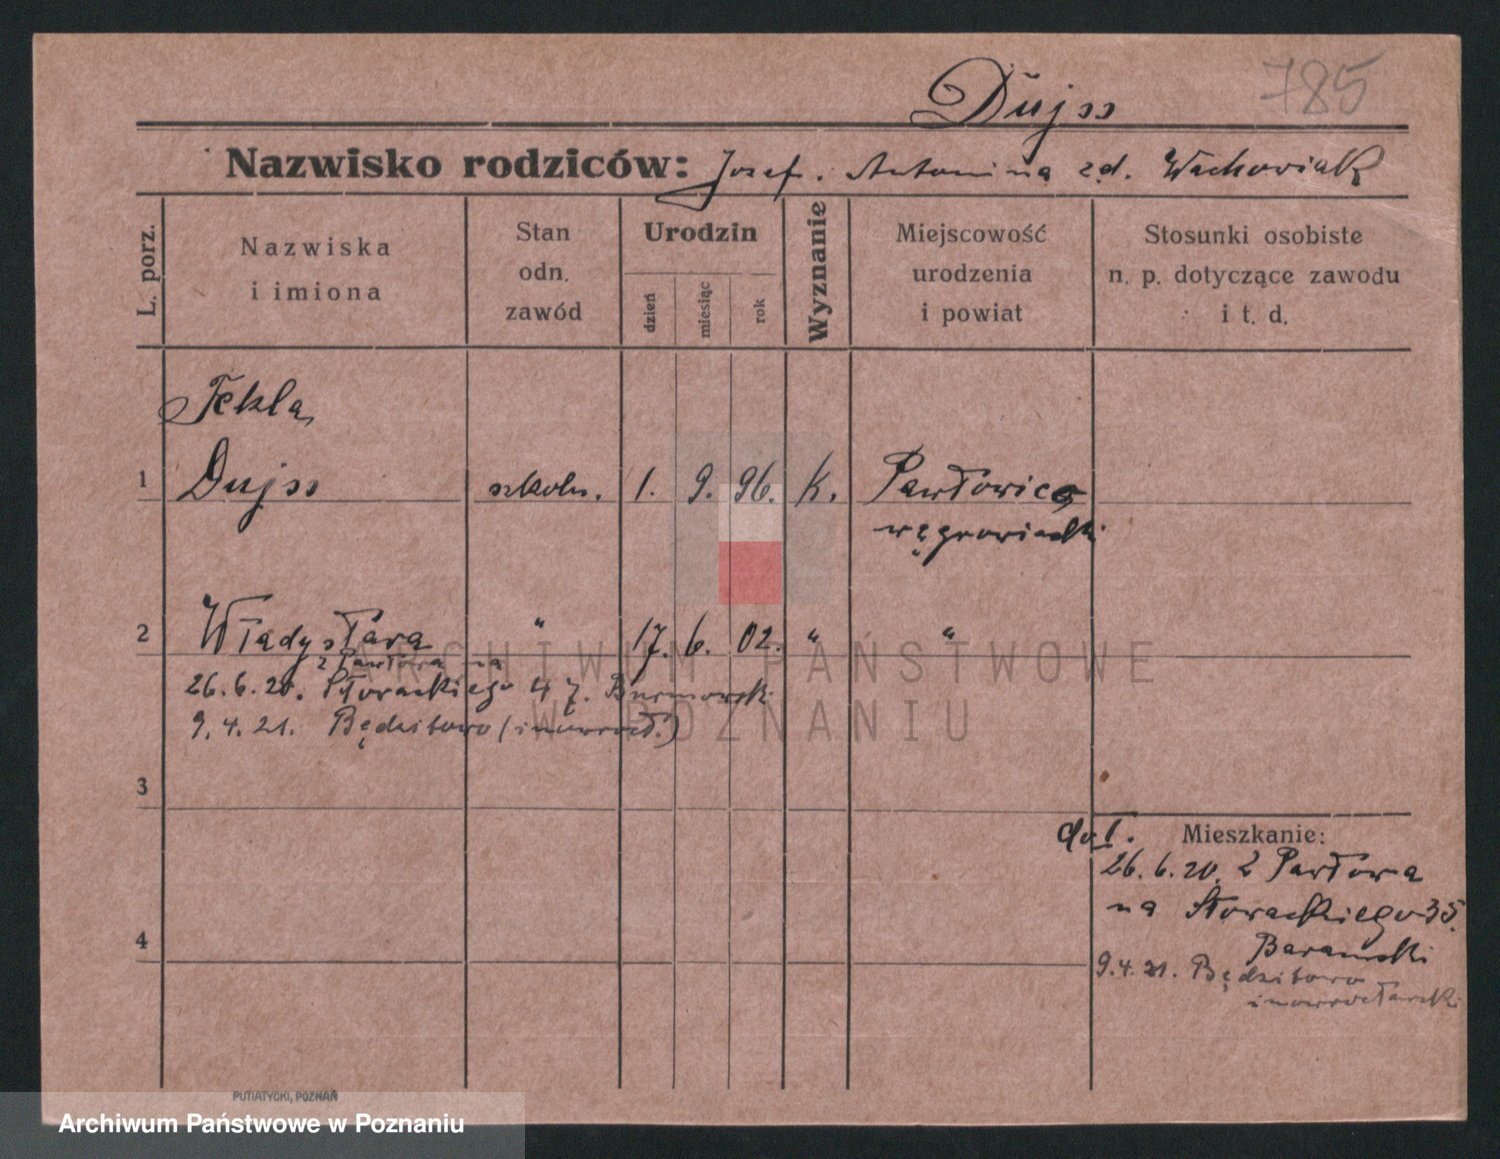 785
Dujss
Nazwisko rodziców: Jozef. Antonina zd. Wachowiak
L. porz.
Nazwiska
i imiona
Stan
odn.
zawód
Urodzin
dzień
miesiąc
rok
Wyznanie
Miejscowość
urodzenia
i powiat
Stosunki osobiste
n. p. dotyczące zawodu
i t. d.
Tekla
1 Dujss szkoln. 1. 9. 96. k. Pawłowice
wągrowiecki
2 Władysława " 17. 6. 02. " "
z Pawłowa na
26.6.20. Słowackiego 4
9.4.21. Będzitowo (inowrocł.)
3
4
do 1. Mieszkanie:
26.6.20. z Pawłowa
na Słowackiego 35.
Baranski
9.4.21. Będzitowo
inowrocławski
PUTIATYCKI, POZNAŃ
ARCHIWUM PAŃSTWOWE
W POZNANIU
Archiwum Państwowe w Poznaniu